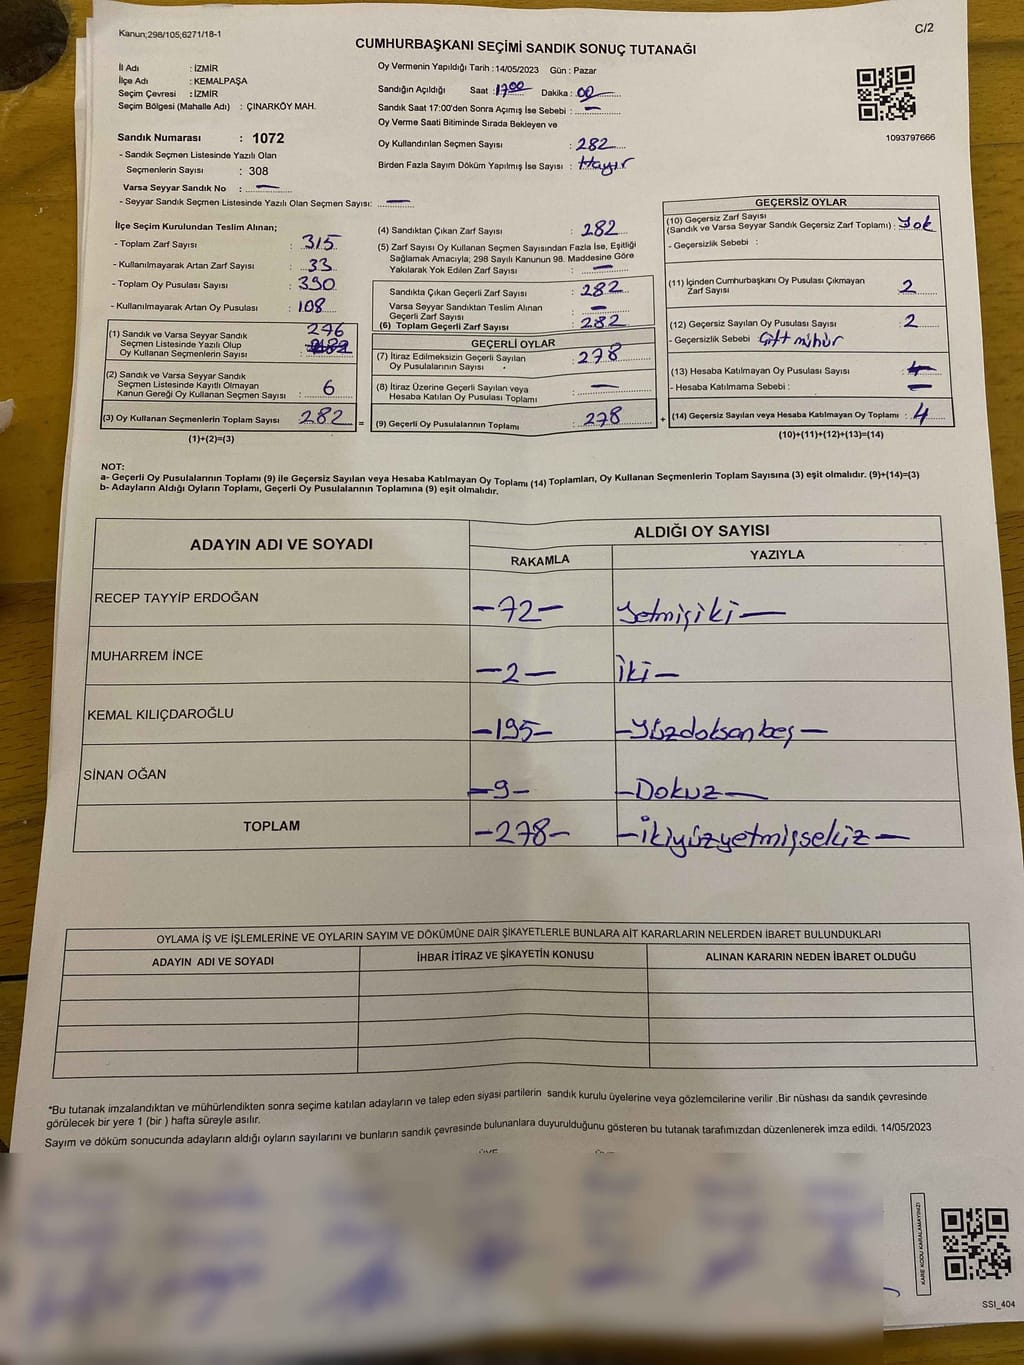 Kanun;298/105;6271/18-1
C/2
CUMHURBAŞKANI SEÇİMİ SANDIK SONUÇ TUTANAĞI
İl Adı : İZMİR
İlçe Adı : KEMALPAŞA
Seçim Çevresi : İZMİR
Seçim Bölgesi (Mahalle Adı) : ÇINARKÖY MAH.
Sandık Numarası : 1072
- Sandık Seçmen Listesinde Yazılı Olan
Seçmenlerin Sayısı : 308
Varsa Seyyar Sandık No : —
- Seyyar Sandık Seçmen Listesinde Yazılı Olan Seçmen Sayısı: —
Oy Vermenin Yapıldığı Tarih : 14/05/2023 Gün : Pazar
Sandığın Açıldığı Saat : 17:00 Dakika : 00
Sandık Saat 17:00'den Sonra Açımış İse Sebebi : —
Oy Verme Saati Bitiminde Sırada Bekleyen ve
Oy Kullandırılan Seçmen Sayısı : 282
Birden Fazla Sayım Döküm Yapılmış İse Sayısı : Hayır
1093797666
İlçe Seçim Kurulundan Teslim Alınan;
- Toplam Zarf Sayısı : 315
- Kullanılmayarak Artan Zarf Sayısı : 33
- Toplam Oy Pusulası Sayısı : 390
- Kullanılmayarak Artan Oy Pusulası : 108
(1) Sandık ve Varsa Seyyar Sandık
Seçmen Listesinde Yazılı Olup
Oy Kullanan Seçmenlerin Sayısı : 276
(2) Sandık ve Varsa Seyyar Sandık
Seçmen Listesinde Kayıtlı Olmayan
Kanun Gereği Oy Kullanan Seçmen Sayısı : 6
(3) Oy Kullanan Seçmenlerin Toplam Sayısı : 282
(1)+(2)=(3)
(4) Sandıktan Çıkan Zarf Sayısı : 282
(5) Zarf Sayısı Oy Kullanan Seçmen Sayısından Fazla İse, Eşitliği
Sağlamak Amacıyla; 298 Sayılı Kanunun 98. Maddesine Göre
Yakılarak Yok Edilen Zarf Sayısı : —
Sandıkta Çıkan Geçerli Zarf Sayısı : 282
Varsa Seyyar Sandıktan Teslim Alınan
Geçerli Zarf Sayısı : —
(6) Toplam Geçerli Zarf Sayısı : 282
GEÇERLİ OYLAR
(7) İtiraz Edilmeksizin Geçerli Sayılan
Oy Pusulalarının Sayısı : 278
(8) İtiraz Üzerine Geçerli Sayılan veya
Hesaba Katılan Oy Pusulası Toplamı : —
= (9) Geçerli Oy Pusulalarının Toplamı : 278 +
GEÇERSİZ OYLAR
(10) Geçersiz Zarf Sayısı
(Sandık ve Varsa Seyyar Sandık Geçersiz Zarf Toplamı) : Yok
- Geçersizlik Sebebi :
(11) İçinden Cumhurbaşkanı Oy Pusulası Çıkmayan
Zarf Sayısı : 2
(12) Geçersiz Sayılan Oy Pusulası Sayısı : 2
- Geçersizlik Sebebi : Çift mühür
(13) Hesaba Katılmayan Oy Pusulası Sayısı : —
- Hesaba Katılmama Sebebi : —
(14) Geçersiz Sayılan veya Hesaba Katılmayan Oy Toplamı : 4
(10)+(11)+(12)+(13)=(14)
NOT:
a- Geçerli Oy Pusulalarının Toplamı (9) ile Geçersiz Sayılan veya Hesaba Katılmayan Oy Toplamı (14) Toplamları, Oy Kullanan Seçmenlerin Toplam Sayısına (3) eşit olmalıdır. (9)+(14)=(3)
b- Adayların Aldığı Oyların Toplamı, Geçerli Oy Pusulalarının Toplamına (9) eşit olmalıdır.
ADAYIN ADI VE SOYADI
ALDIĞI OY SAYISI
RAKAMLA YAZIYLA
RECEP TAYYİP ERDOĞAN -72- Yetmişiki—
MUHARREM İNCE -2- İki-
KEMAL KILIÇDAROĞLU -195- -Yüzdoksanbeş-
SİNAN OĞAN -9- -Dokuz-
TOPLAM -278- -İkiyüzyetmişsekiz-
OYLAMA İŞ VE İŞLEMLERİNE VE OYLARIN SAYIM VE DÖKÜMÜNE DAİR ŞİKAYETLERLE BUNLARA AİT KARARLARIN NELERDEN İBARET BULUNDUKLARI
ADAYIN ADI VE SOYADI İHBAR İTİRAZ VE ŞİKAYETİN KONUSU ALINAN KARARIN NEDEN İBARET OLDUĞU
*Bu tutanak imzalandıktan ve mühürlendikten sonra seçime katılan adayların ve talep eden siyasi partilerin sandık kurulu üyelerine veya gözlemcilerine verilir .Bir nüshası da sandık çevresinde
görülecek bir yere 1 (bir ) hafta süreyle asılır.
Sayım ve döküm sonucunda adayların aldığı oyların sayılarını ve bunların sandık çevresinde bulunanlara duyurulduğunu gösteren bu tutanak tarafımızdan düzenlenerek imza edildi. 14/05/2023
KARE KODU KARALAMAYINIZ!
SSI_404